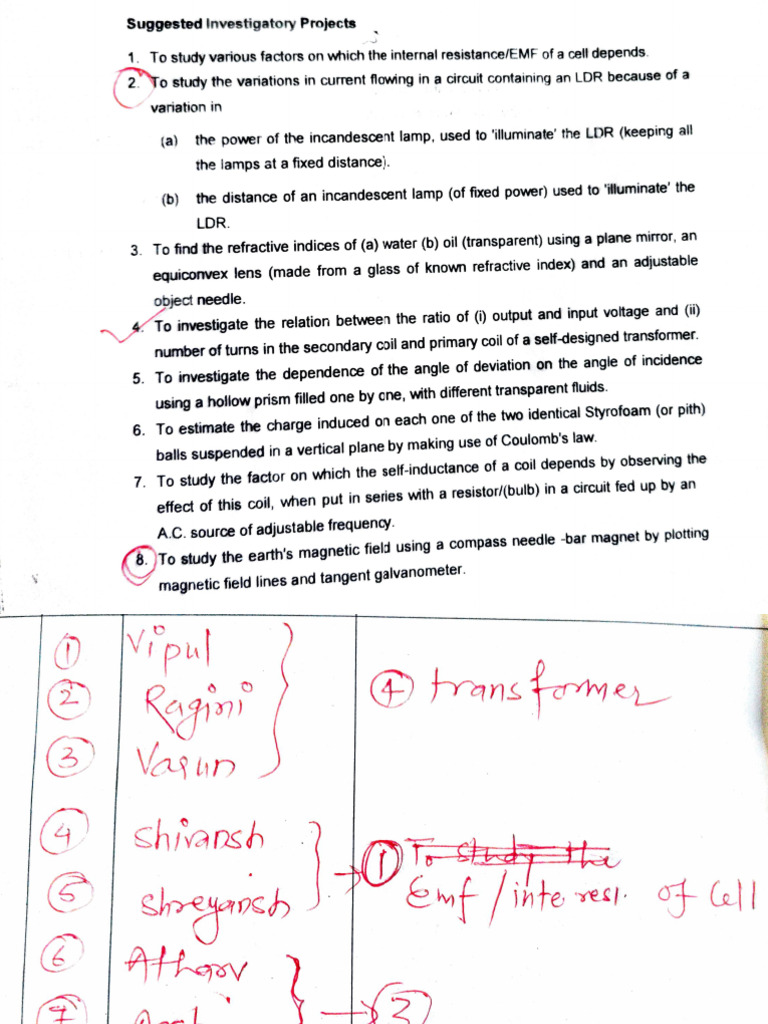 Suggested Investigatory Projects
1. To study various factors on which the internal resistance/EMF of a cell depends.
2. To study the variations in current flowing in a circuit containing an LDR because of a
variation in
(a) the power of the incandescent lamp, used to 'illuminate' the LDR (keeping all
the lamps at a fixed distance).
(b) the distance of an incandescent lamp (of fixed power) used to 'illuminate' the
LDR.
3. To find the refractive indices of (a) water (b) oil (transparent) using a plane mirror, an
equiconvex lens (made from a glass of known refractive index) and an adjustable
object needle.
4. To investigate the relation between the ratio of (i) output and input voltage and (ii)
number of turns in the secondary coil and primary coil of a self-designed transformer.
5. To investigate the dependence of the angle of deviation on the angle of incidence
using a hollow prism filled one by one, with different transparent fluids.
6. To estimate the charge induced on each one of the two identical Styrofoam (or pith)
balls suspended in a vertical plane by making use of Coulomb's law.
7. To study the factor on which the self-inductance of a coil depends by observing the
effect of this coil, when put in series with a resistor/(bulb) in a circuit fed up by an
A.C. source of adjustable frequency.
8. To study the earth's magnetic field using a compass needle -bar magnet by plotting
magnetic field lines and tangent galvanometer.
1 Vipul
2 Ragini 4 transformer
3 Varun
4 Shivansh 1 To study the
5 Shreyansh Emf / inte resi. of Cell
6 Atharv
7 3